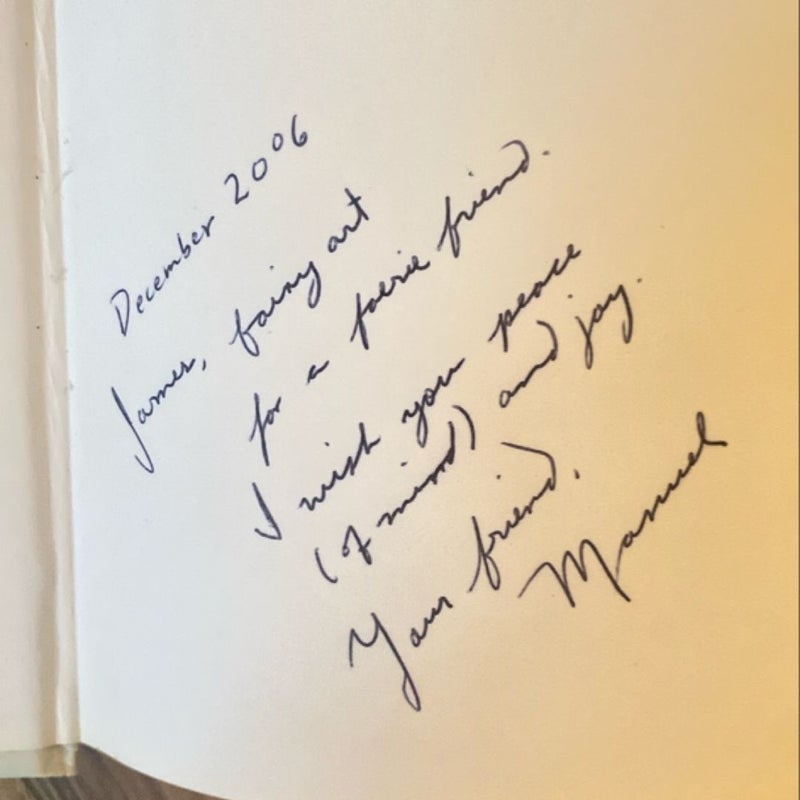 December 2006
James, fairy art
for a faerie friend.
I wish you peace
(of mind) and joy.
Your friend,
Manuel